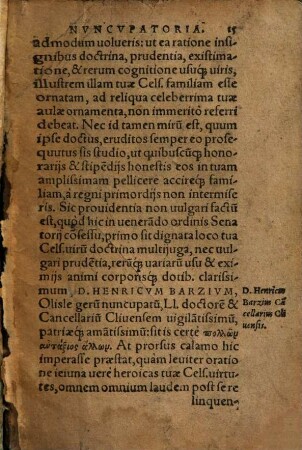 NVNCVPATORIA. 15
admodum volueris: ut ea ratione insi-
gnibus doctrina, prudentia, existima-
tione, & rerum cognitione usuq́; viris,
illustrem illam tuæ Cels. familiam esse
ornatam, ad reliqua celeberrima tuæ
aulæ ornamenta, non immeritò referri
debeat. Nec id tamen mirū est, quum
ipse doctus, eruditos semper eo prose-
quutus sis studio, ut quibuscūq; hono-
rarijs & stipēdijs honestis eos in tuam
amplissimam pellicere accireq́; fami-
liam, à regni primordijs non intermise-
ris. Sic providentia non vulgari factū
est, quòd hic in venerādo ordinis Sena
torij cōsessu, primo sit dignata loco tua
Cels. virū doctrina multijuga, nec vul-
gari prudētia, rerūq; variarū usu & ex-
imijs animi corporisq́; dotib. clarissi-
mum D. HENRICVM BARZIVM,
Olisle gerū nuncupatū, LL. doctorē &
Cancellariū Cliuensem uigilātissimū,
patriæq́; amātissimū: sit is certè πολλῶν
ἀντάξιος ἄλλων. At prorsus calamo hic
imperasse præstat, quàm leuiter oratio
ne ieiuna vere heroicas tuæ Cels. virtu-
tes, omnem omnium laudem post se re
linquen-
D. Henricus
Barzius Cā
cellarius Cli
uensis.